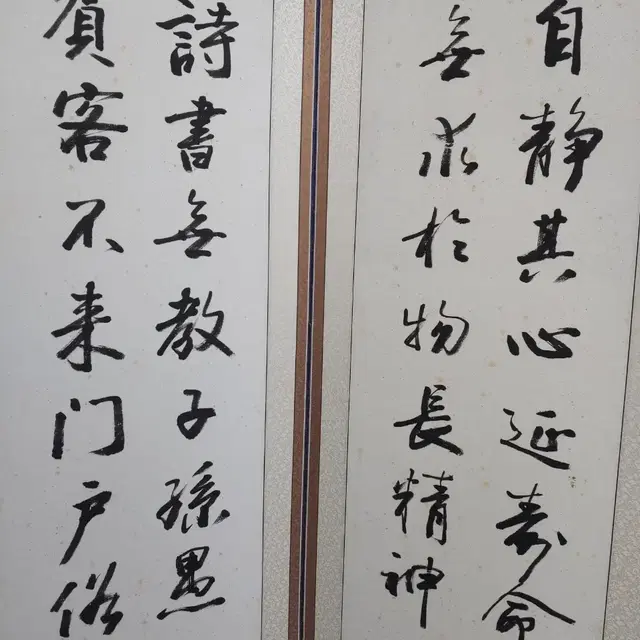 自静其心延寿命
無求於物長精神
詩書無教子孫愚
賓客不来门户俗